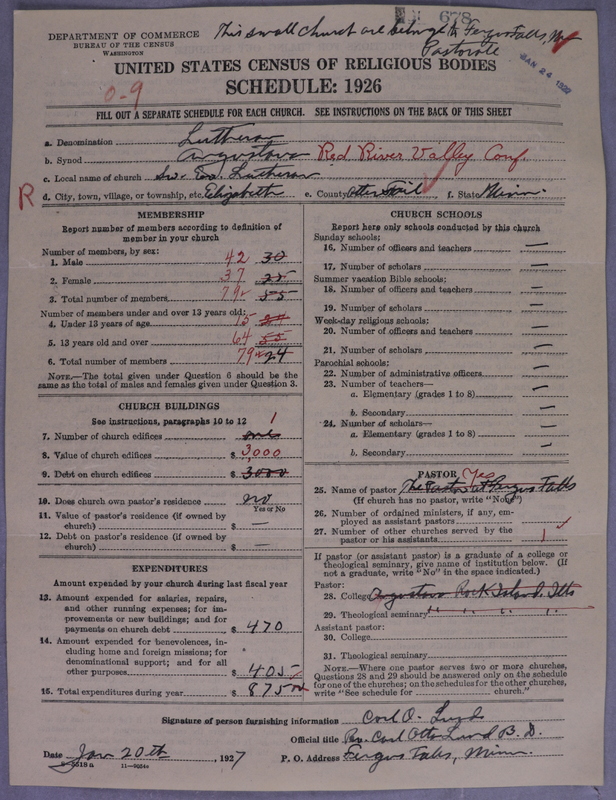 678
This small church are belongs to Fergus Falls, Minn
Pastorate
DEPARTMENT OF COMMERCE
BUREAU OF THE CENSUS
WASHINGTON
JAN 24
UNITED STATES CENSUS OF RELIGIOUS BODIES
SCHEDULE: 1926
0-9
FILL OUT A SEPARATE SCHEDULE FOR EACH CHURCH. SEE INSTRUCTIONS ON THE BACK OF THIS SHEET
a. Denomination Lutheran
b. Synod Augustana Red River Valley Conf.
c. Local name of church Sw. Ev. Lutheran
R d. City, town, village, or township, etc. Elizabeth e. County Otter Tail f. State Minn.
MEMBERSHIP
Report number of members according to definition of
member in your church
Number of members, by sex:
1. Male 42 30
2. Female 37 25
3. Total number of members 79 55
Number of members under and over 13 years old:
4. Under 13 years of age 15 24
5. 13 years old and over 64 55
6. Total number of members 79 24
NOTE.—The total given under Question 6 should be
the same as the total of males and females given under Question 3.
CHURCH BUILDINGS
See instructions, paragraphs 10 to 12
7. Number of church edifices one 1
8. Value of church edifices $ 3,000
9. Debt on church edifices $ 3000
10. Does church own pastor's residence no
Yes or No
11. Value of pastor's residence (if owned by
church) $ —
12. Debt on pastor's residence (if owned by
church) $ —
EXPENDITURES
Amount expended by your church during last fiscal year
13. Amount expended for salaries, repairs,
and other running expenses; for im-
provements or new buildings; and for
payments on church debt $ 470
14. Amount expended for benevolences, in-
cluding home and foreign missions; for
denominational support; and for all
other purposes $ 405
15. Total expenditures during year $ 875
CHURCH SCHOOLS
Report here only schools conducted by this church
Sunday schools:
16. Number of officers and teachers —
17. Number of scholars —
Summer vacation Bible schools:
18. Number of officers and teachers —
19. Number of scholars —
Week-day religious schools:
20. Number of officers and teachers —
21. Number of scholars —
Parochial schools:
22. Number of administrative officers —
23. Number of teachers—
a. Elementary (grades 1 to 8) —
b. Secondary —
24. Number of scholars—
a. Elementary (grades 1 to 8) —
b. Secondary —
PASTOR Yes
25. Name of pastor The Pastor at Fergus Falls
(If church has no pastor, write "None")
26. Number of ordained ministers, if any, em-
ployed as assistant pastors
27. Number of other churches served by the
pastor or his assistants 1
If pastor (or assistant pastor) is a graduate of a college or
theological seminary, give name of institution below. (If
not a graduate, write "No" in the space indicated.)
Pastor:
28. College Augustana Rock Island. Ills
29. Theological seminary " " " "
Assistant pastor:
30. College
31. Theological seminary
NOTE.—Where one pastor serves two or more churches,
Questions 28 and 29 should be answered only on the schedule
for one of the churches; on the schedules for the other churches,
write "See schedule for church."
Signature of person furnishing information Carl O. Lund
Official title Rev. Carl Otto Lund B. D.
Date Jan 20th 1927 P. O. Address Fergus Falls, Minn.
11—9024